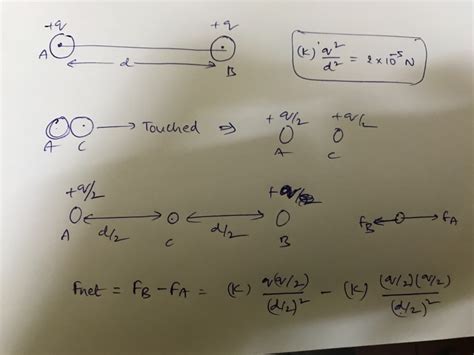 +q +q
A B
d
(K) q²/d² = 2×10⁻⁵ N
A C → Touched ⇒ +q/2 +q/2
A C
+q/2
A d/2 C d/2 B
F_B F_A
Fnet = F_B − F_A = (K) q(q/2)/(d/2)² − (K) (q/2)(q/2)/(d/2)²